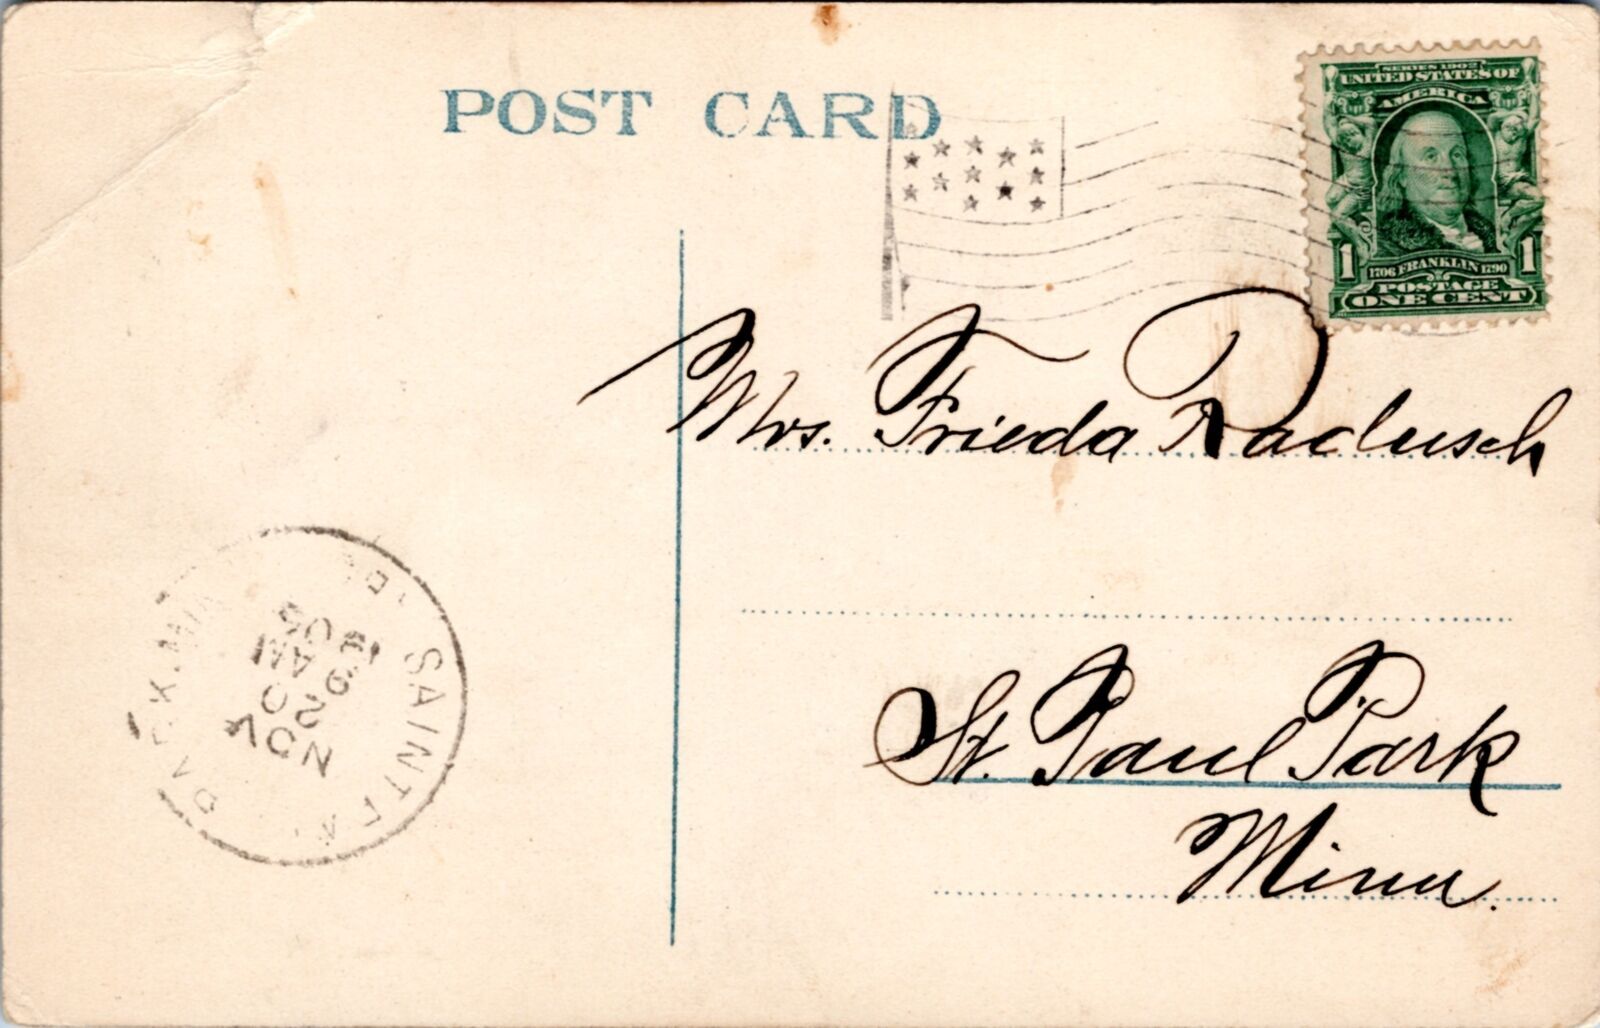 POST CARD
SERIES 1902
UNITED STATES OF
AMERICA
1 1706 FRANKLIN 1790 1
POSTAGE
ONE CENT
Mrs. Frieda Radusch
St. Paul Park
Minn.
SAINT PA
NOV
20
AM